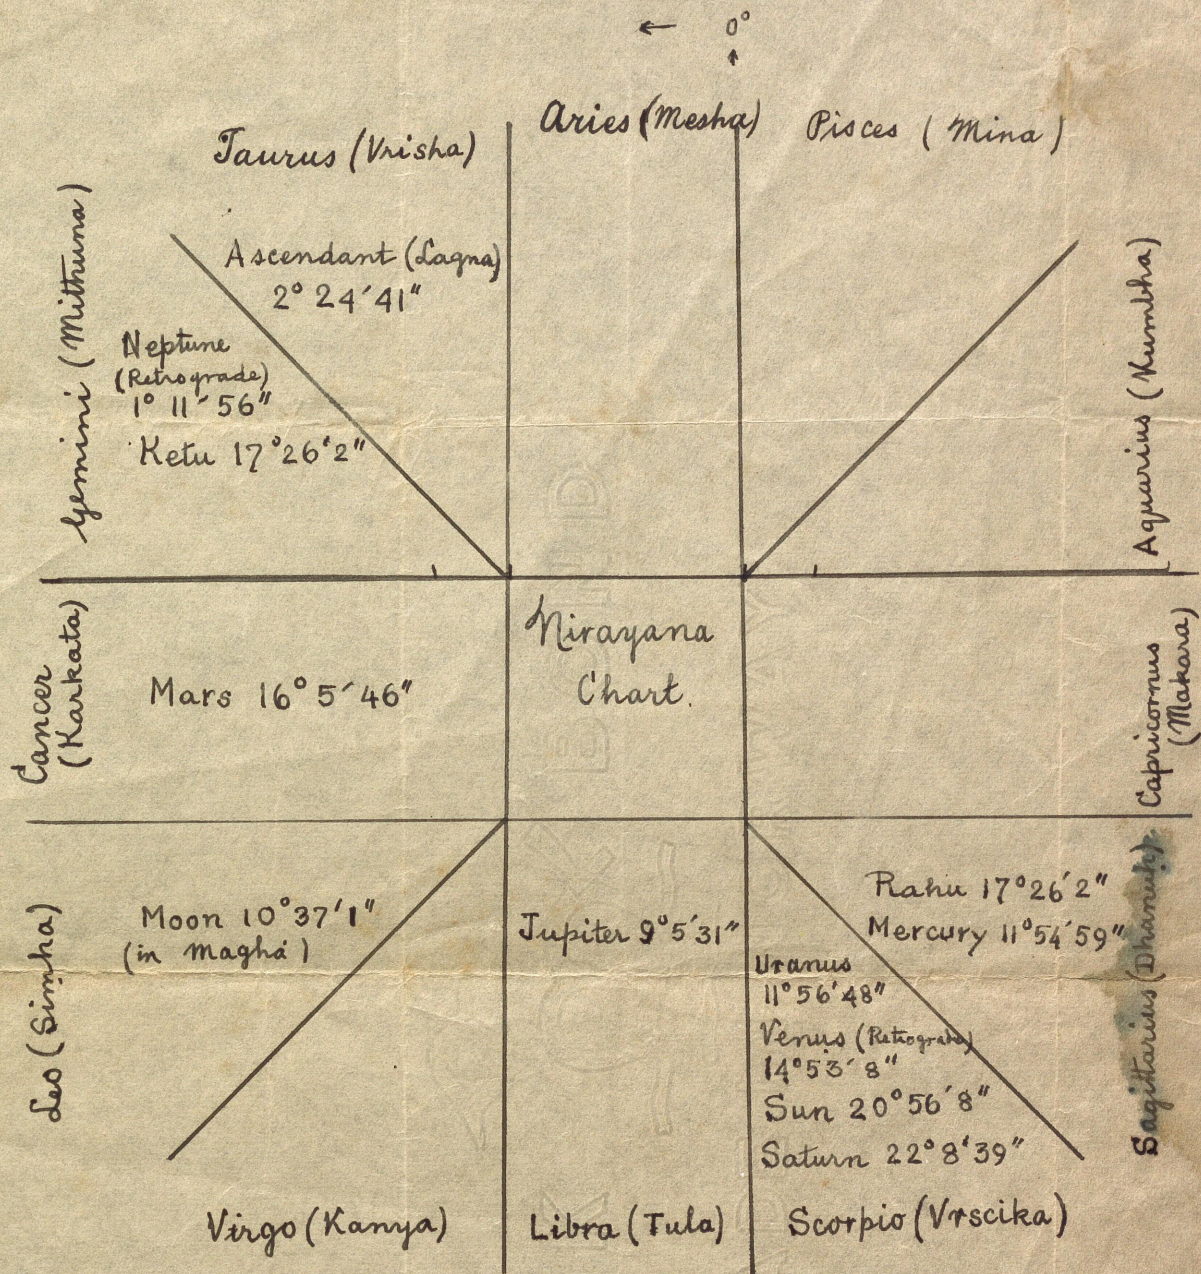 ← 0°
↑
Aries (Mesha)
Pisces (Mina)
Taurus (Vrisha)
Gemini (Mithuna)
Ascendant (Lagna)
2° 24′ 41″
Neptune
(Retrograde)
1° 11′ 56″
Ketu 17° 26′ 2″
Aquarius (Kumbha)
Nirayana
Chart.
Cancer
(Karkata)
Mars 16° 5′ 46″
Capricornus
(Makara)
Leo (Siṃha)
Moon 10° 37′ 1″
(in Magha)
Jupiter 9° 5′ 31″
Rahu 17° 26′ 2″
Mercury 11° 54′ 59″
Uranus
11° 56′ 48″
Venus (Retrograde)
14° 53′ 8″
Sun 20° 56′ 8″
Saturn 22° 8′ 39″
Sagittarius (Dhanuḥ)
Virgo (Kanya)
Libra (Tula)
Scorpio (Vrscika)